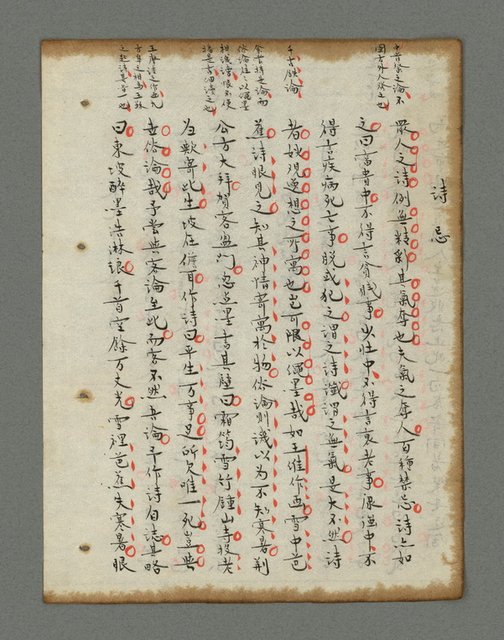 詩忌
眾人之詩例無精彩其氣奪也夫氣之奪人百種禁忌詩亦如
之曰富貴中不得言貧賤事少壯中不得言衰老事康强中不
得言疾病死亡事脫或犯之謂之詩讖謂之無氣是大不然詩
者妙觀逸想之所寓也豈可限以繩墨哉如王維作畫雪中芭
蕉詩眼見之知其神情寄寓於物俗論則譏以為不知寒暑荊
公方大拜賀客盈門忽點墨書其壁曰霜筠雪竹鍾山寺投老
歸歟寄此生坡在儋耳作詩曰平生萬事足所欠唯一死豈與
世俗論哉予嘗與客論至此而客不然吾論予作詩自志其略
曰東坡醉墨浩淋琅千首空餘萬丈光雪裡芭蕉失寒暑眼
之論不
方外人發之也
千古確論
余嘗持此論而
俗論往往以繩墨